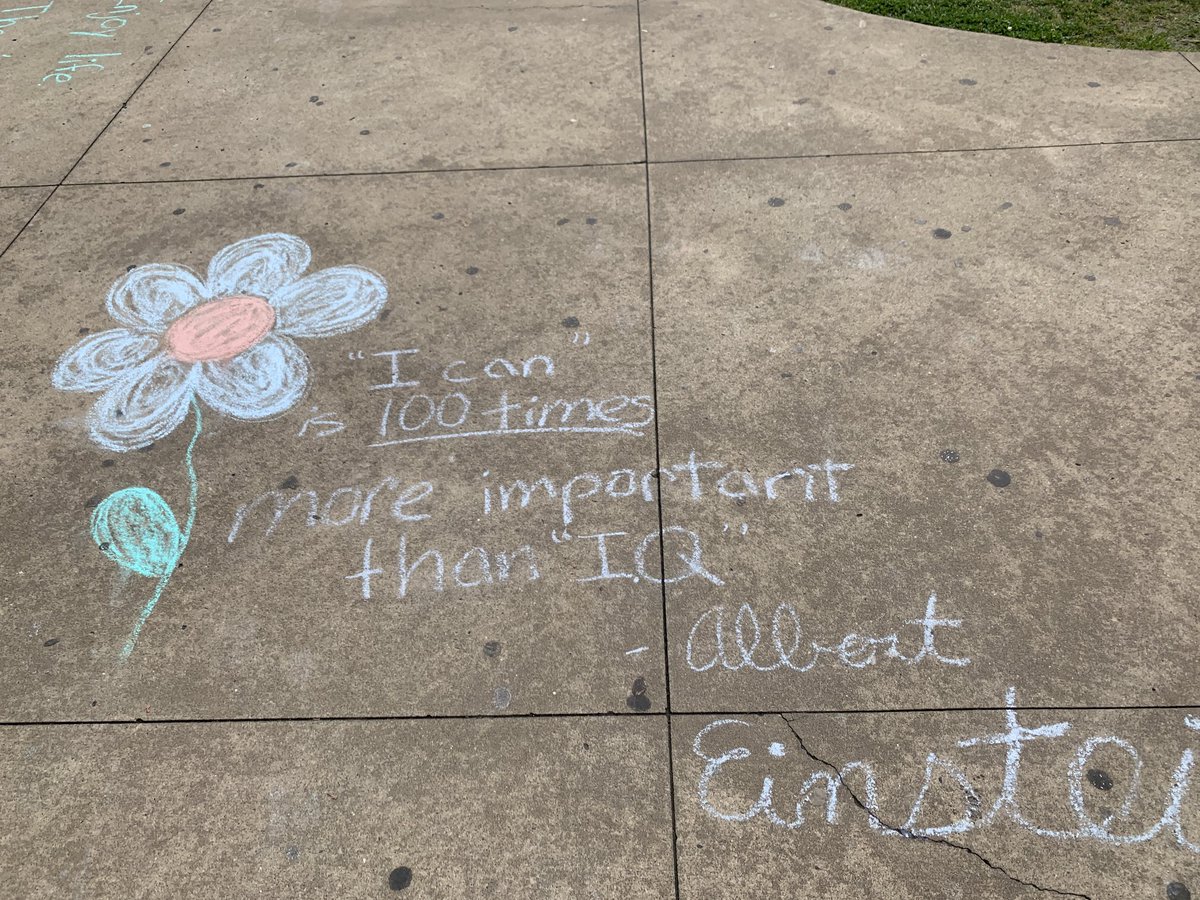 enjoy life.
"I can"
is 100 times
more important
than "I.Q"
- Albert
Einstei